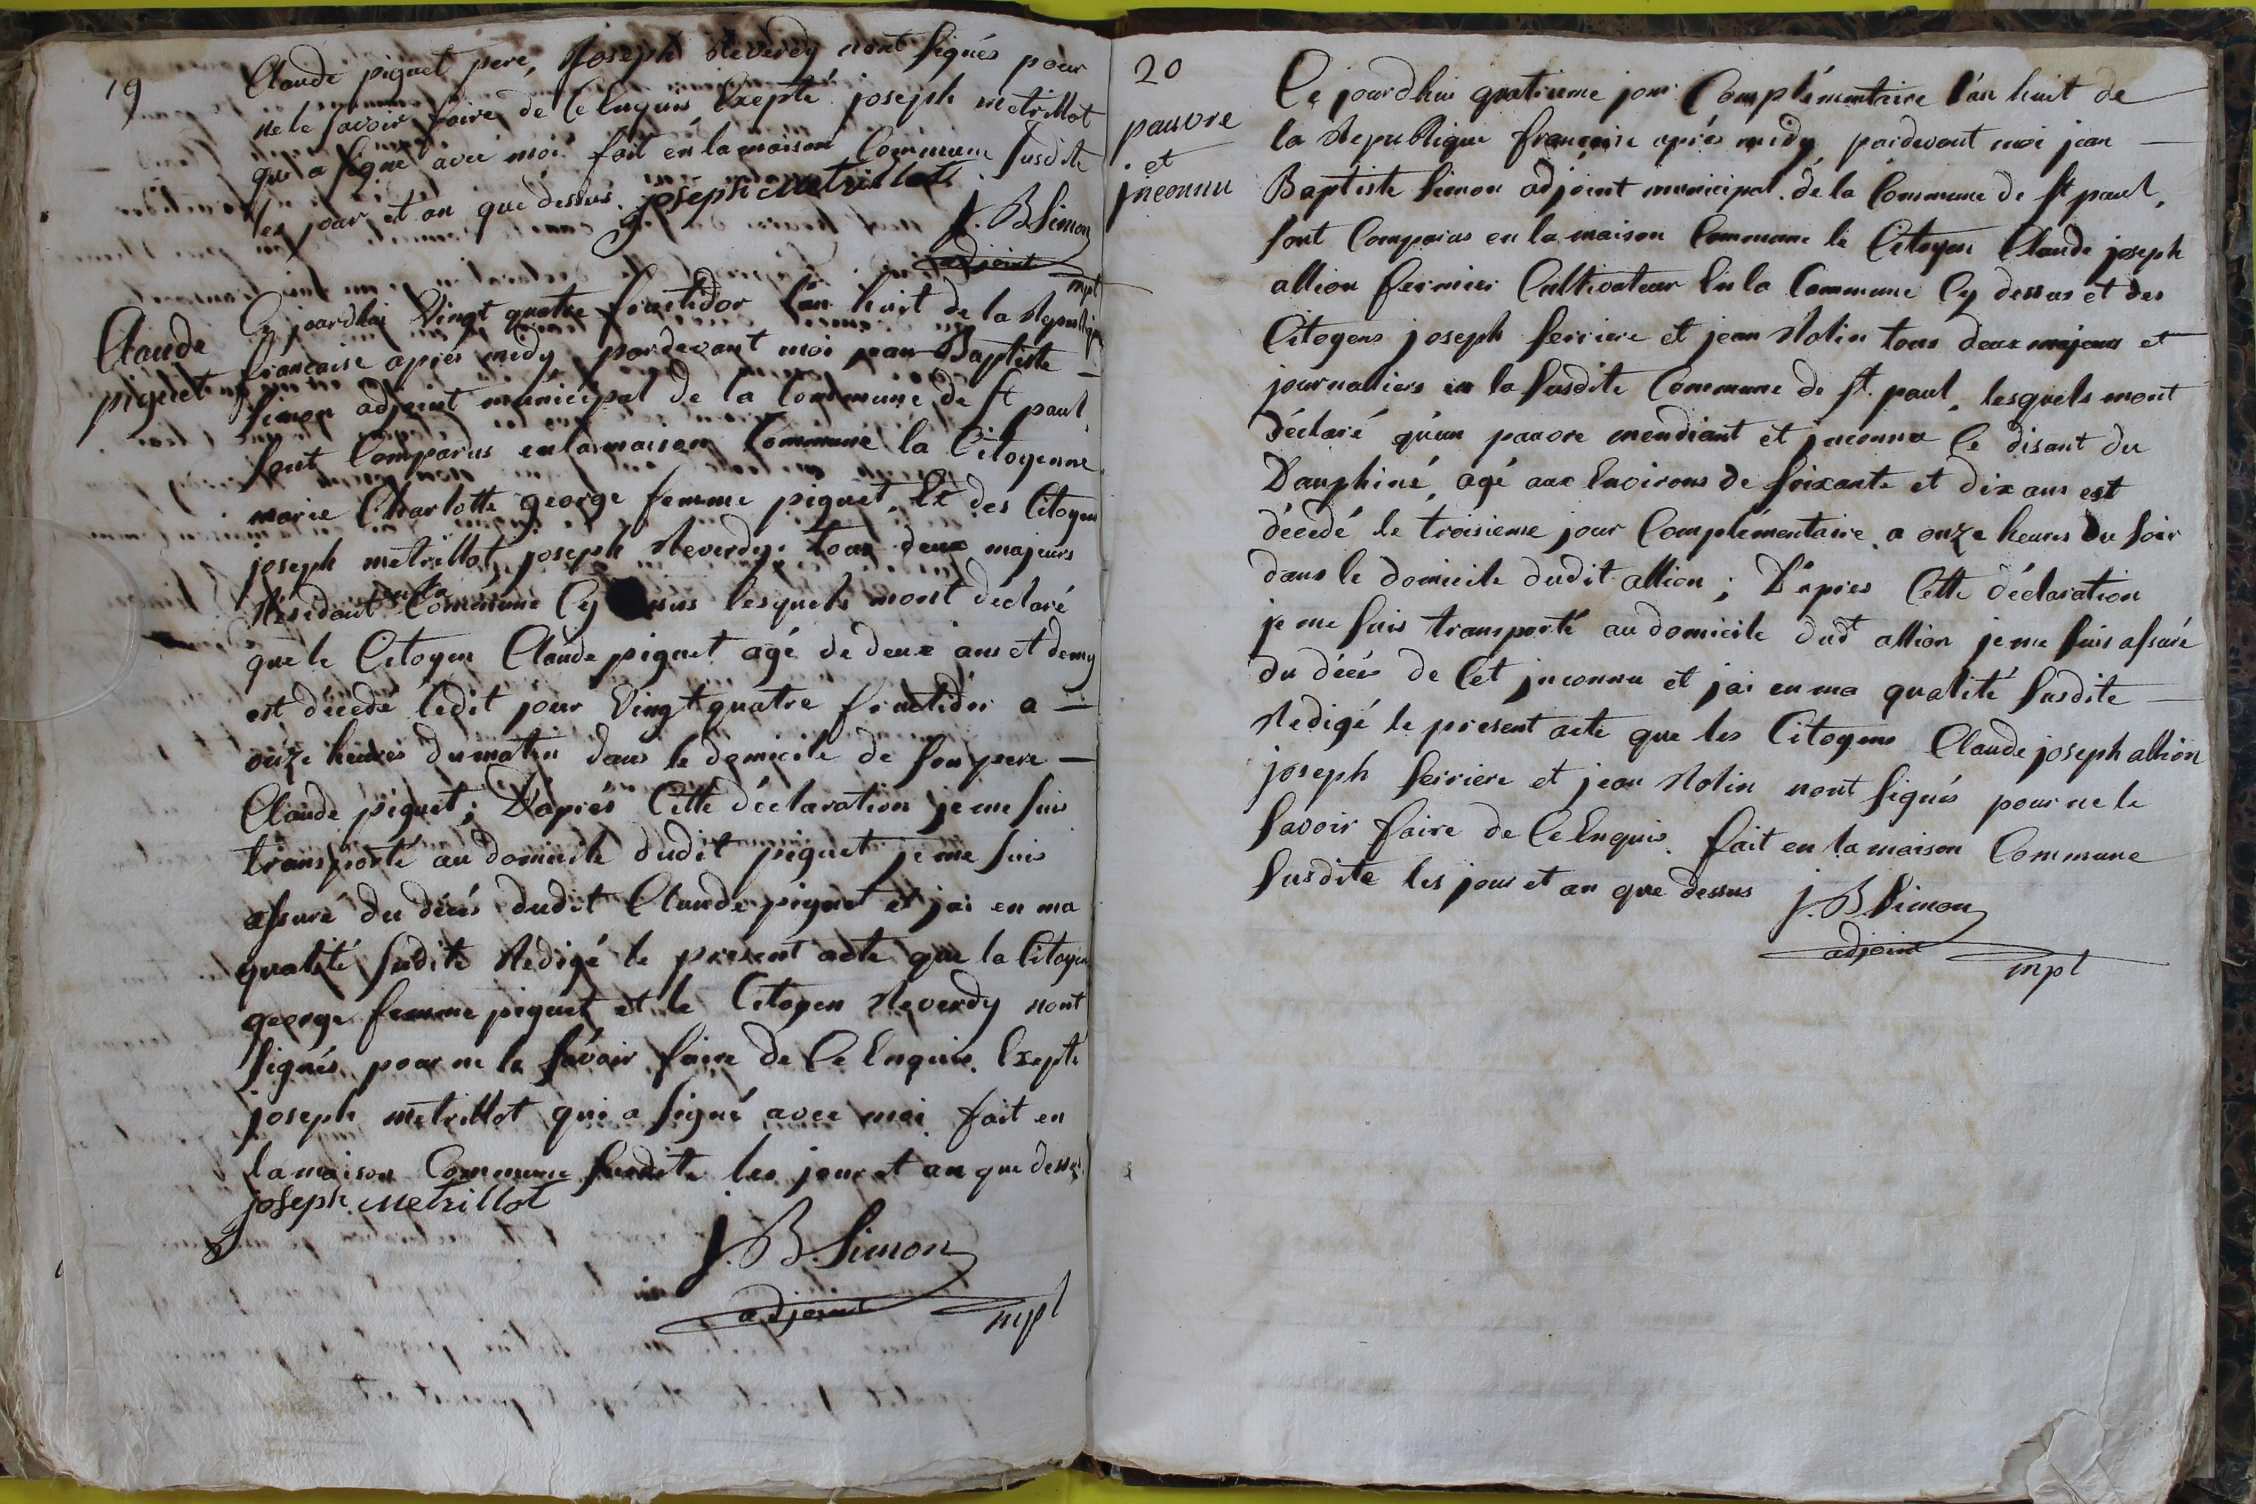 19
Claude piguet pere, Joseph Reverdy nont signés pour
ne le savoir faire de Ce Enquis Exepté joseph metrillot
qui a signé avec moi fait en la maison Commune Susdite
les jour et an que dessus. joseph Metrillot
J. B. Simon
adjoint
mpl
Claude
piguet
Ce jourdhui Vingt quatre fructidor l'an huit de la Republique
francaise aprés midy, pardevant moi jean Baptiste
Simon adjoint municipal de la Commune de St paul,
sont Comparus en la maison Commune la Citoyenne
marie Charlotte george femme piguet, Et des Citoyens
joseph metrillot, joseph Reverdy, tous deux majeurs
Residant en la Commune Cy lesquels mont déclaré
que le Citoyen Claude piguet agé de deux ans et demy
est décédé ledit jour Vingt quatre fructidor a
onze heures du matin dans le domicile de son pere
Claude piguet; D'aprés Cette déclaration je me suis
transporté au domicile dudit piguet je me suis
assuré du décés dudit Claude piguet et jai en ma
qualité sudite Redigé le present acte que la Citoyen
george femme piguet et le Citoyen Reverdy nont
signés pour ne le savoir faire de Ce Enquis. Exepté
joseph metrillot qui a signé avec moi fait en
la maison Commune susdite les jour et an que dessus.
joseph Metrillot
J. B. Simon
adjoint
mpl
20
pauvre
et
jnconnu
Ce jourdhui quatrieme jour Complémentaire l'an huit de
la Republique francaise aprés midy pardevant moi jean
Baptiste Simon adjoint municipal de la Commune de St paul,
sont Comparus en la maison Commune le Citoyen Claude joseph
allion fermier Cultivateur En la Commune Cy dessus et des
Citoyens joseph ferriere et jean Rolin tous deux majeurs et
journaliers en la susdite Commune de St. paul, lesquels mont
Déclaré qu'un pauvre mendiant et jnconnu Ce disant du
Dauphiné, agé aux Environs de soixante et dix ans est
décédé le troisieme jour Complémentaire a onze heures du soir
dans le domicile dudit allion; D'apres Cette déclaration
je me suis transporté au domicile dudt allion je me suis assuré
du décés de Cet jnconnu et jai en ma qualité susdite
Redigé le present acte que les Citoyens Claude joseph allion
joseph ferriere et jean Rolin nont signés pour ne le
savoir faire de Ce Enquis. fait en la maison Commune
susdite les jour et an que dessus
J. B. Simon
adjoint
mpl